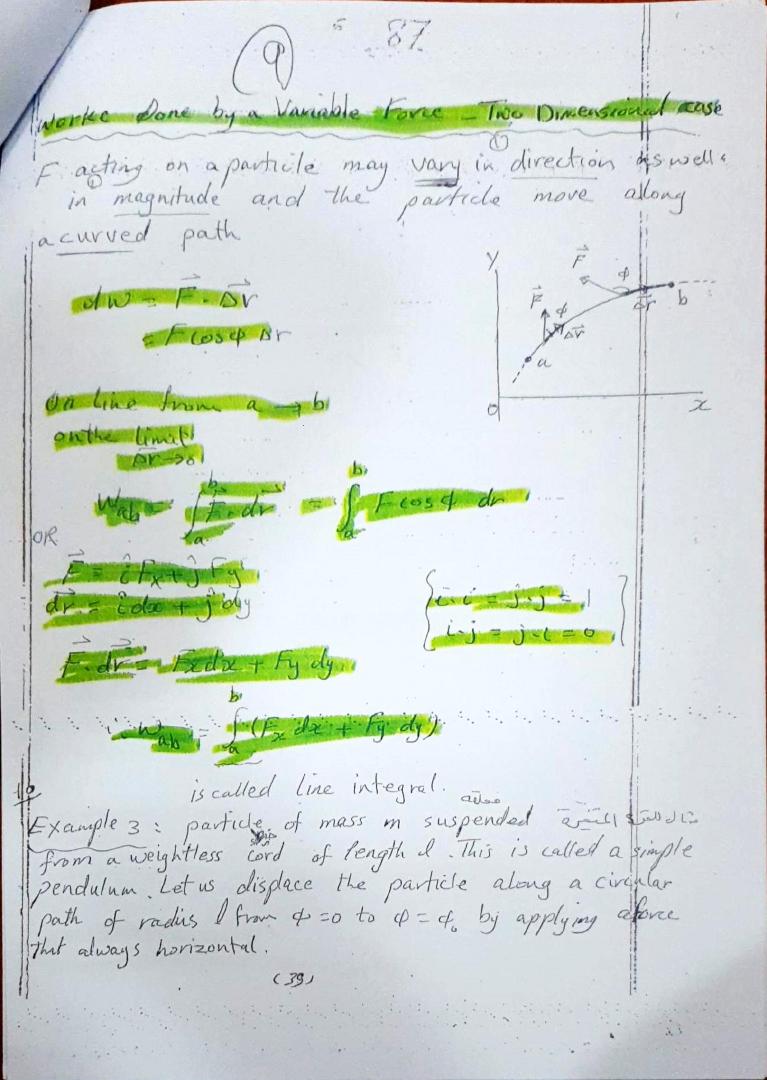 87
9
Worke Done by a Variable Force - Two Dimensional case
F acting on a particle may vary in direction as well
in magnitude and the particle move allong
a curved path
dw = F⃗ . Δr⃗
= F cos φ Δr
On line from a → b
on the limit
Δr→0
W_ab = ∫_a^b F⃗ . dr⃗ = ∫_a^b F cos φ dr
OR
F⃗ = î Fx + ĵ Fy
dr⃗ = î dx + ĵ dy
{ i.i = j.j = 1
i.j = j.i = 0 }
F⃗ . dr⃗ = Fx dx + Fy dy
∴ W_ab = ∫_a^b (Fx dx + Fy dy)
is called line integral.
Example 3 : particle of mass m suspended
from a weightless cord of length l . This is called a simple
pendulum. Let us displace the particle along a circular
path of radius l from φ = 0 to φ = φ₀ by applying aforce
that always horizontal.
(39)
y
F⃗
φ
Δr⃗
b
F⃗
φ
Δr⃗
a
0
x